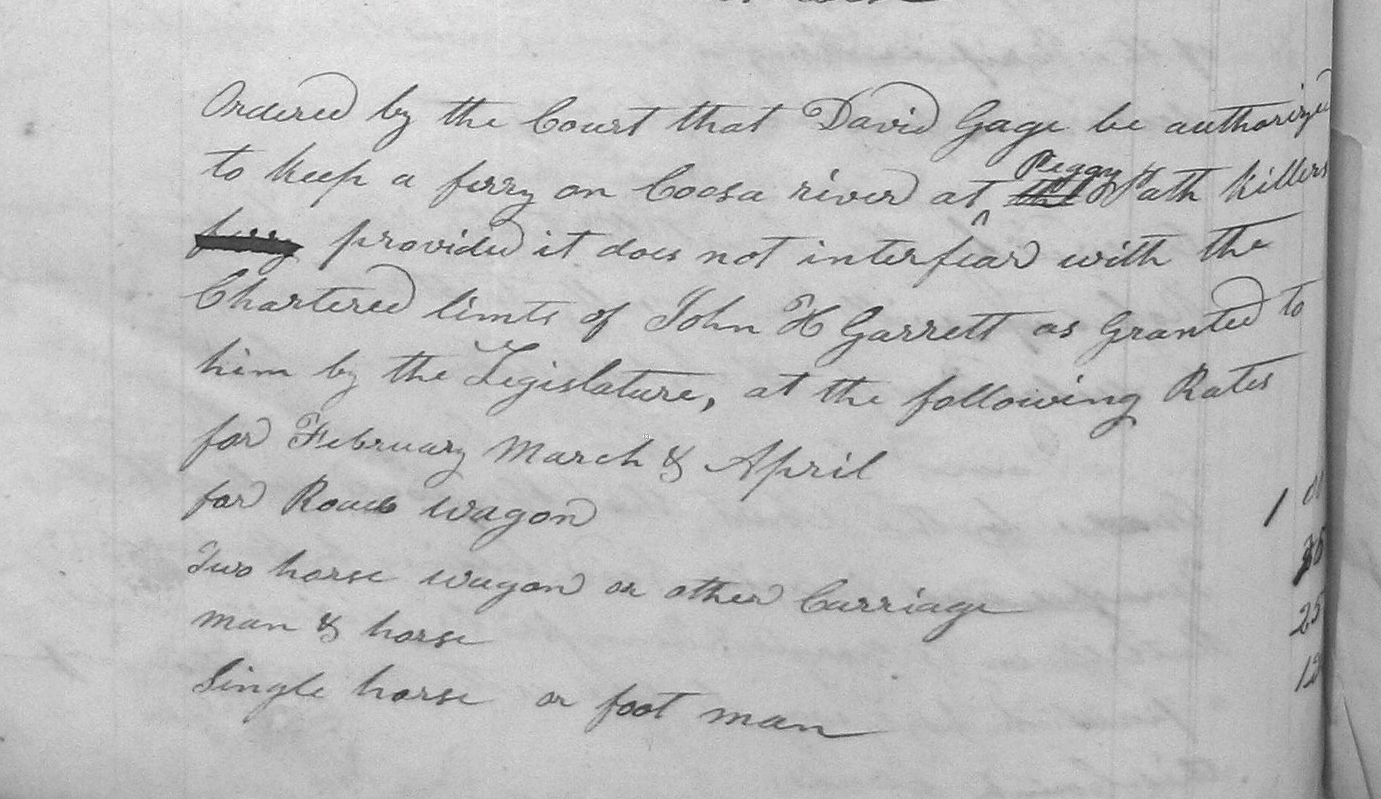 Ordered by the Court that David Gage be authorized
to keep a ferry on Coosa river at Peggy Path Killers
ferry provided it does not interfear with the
Chartered limts of John H Garrett as Granted to
him by the Legislature, at the following Rates
for February March & April
for Road wagon 1 00
Two horse wagon or other Carriage
man & horse 25
Single horse or foot man 12